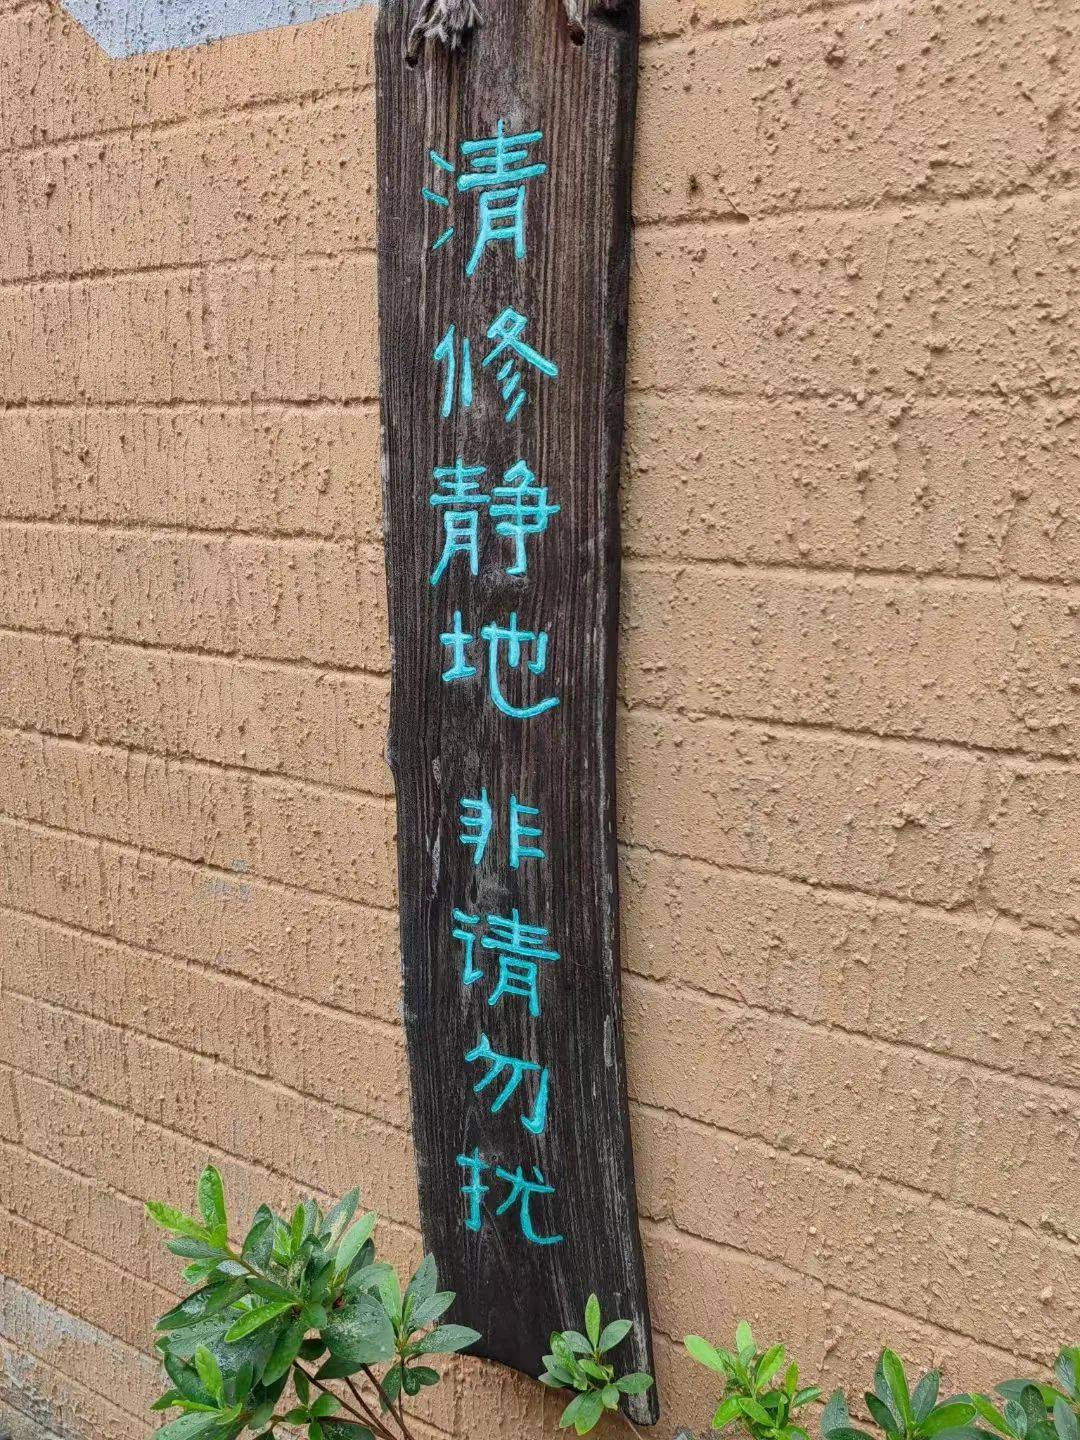 清修静地非请勿扰